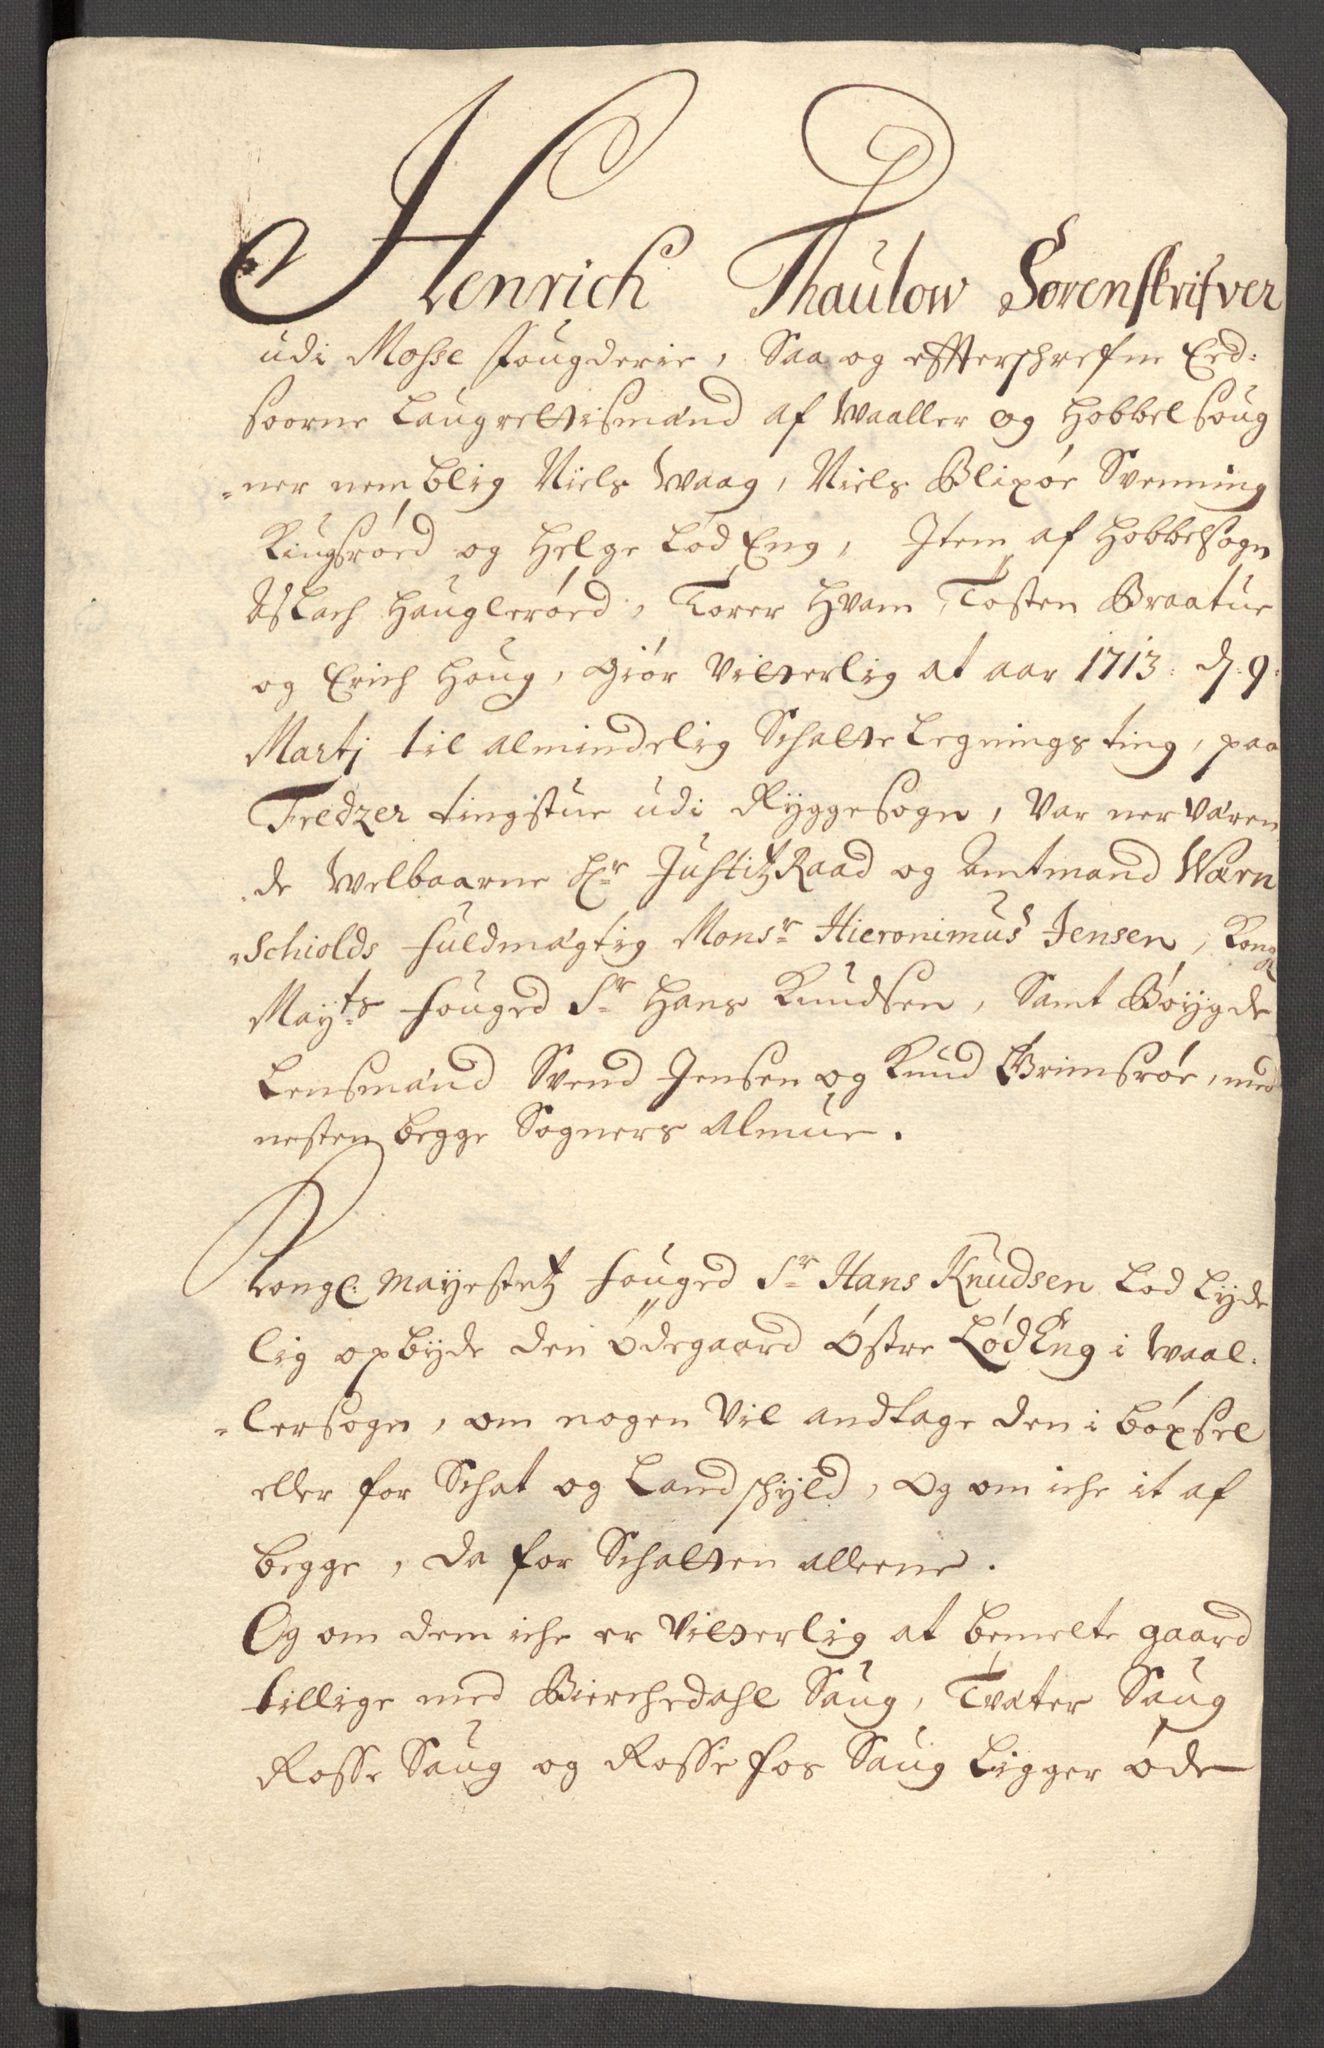 Henrich Thaulow Sorenskrifver
udi Mosse fougderie, Saa og effterschrefne Eed:
soorne Laugrettismænd af Waaller og Hobbelsoug
-ner nemblig Niels Waag, Niels Blixøe Svenning
Kiugsrøed og Helge Lød Eng, Item af Hobbelsogn
Aslach Hauglerøed, Torer Hvam Tosten Braatue
og Erich Houg, Giør Vitterlig at aar 1713: d. 9:
Martj til almindelig Schatte Legnings ting, paa
Fredzer tingstue udi Ryggesogn, Var nerværen
de Welbaarne Hr JustitzRaad og Amtmand Wærn
-Schiolds fuldmægtig Monsr Hieronimus Jensen, Kongl
Mayts fouged Sr Hans Knudsen, Samt Bøygde
Lensmænd Svend Jensen og Knud Grimsrøe, med
nesten begge Sogners Almue.
Kongl: Mayestetz fouged Sr Hans Knudsen Lod Lyde
lig opbyde den Ødegaard Østre LødEng i Waal-
-lersogn, om nogen Vil andtage den i bøxsel
eller for Schat og Landschyld, Og om iche it af
begge, da for Schatten alleene.
Og om dem iche er Vitterlig at bemelte gaard
tillige med Bierchedahl Saug, Tvæter Saug
Rosse Saug og Rosse fos Saug Ligger øde